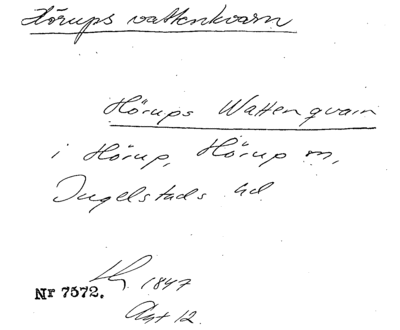 Hörups vattenkvarn
Hörups Wattenqvarn
i Hörup, Hörup m,
Ingelstads hd
1847
Nr 7572.
Akt 12.